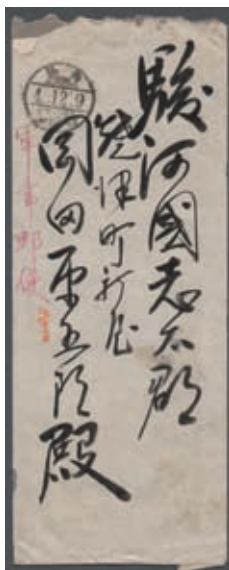 駿河國志太郡
焼津町新屋
岡田平五郎殿
軍事郵便